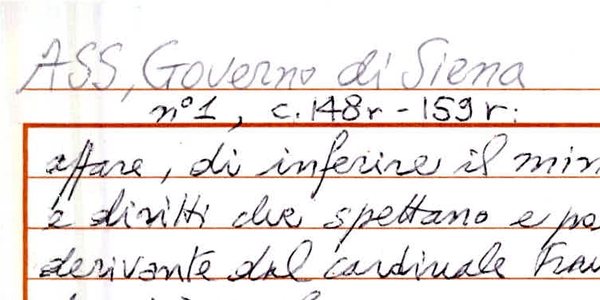 ASS, Governo di Siena
n°1, c.148r-159r:
affare, di inferire il
e diritti che spettano e
derivante dal cardinale